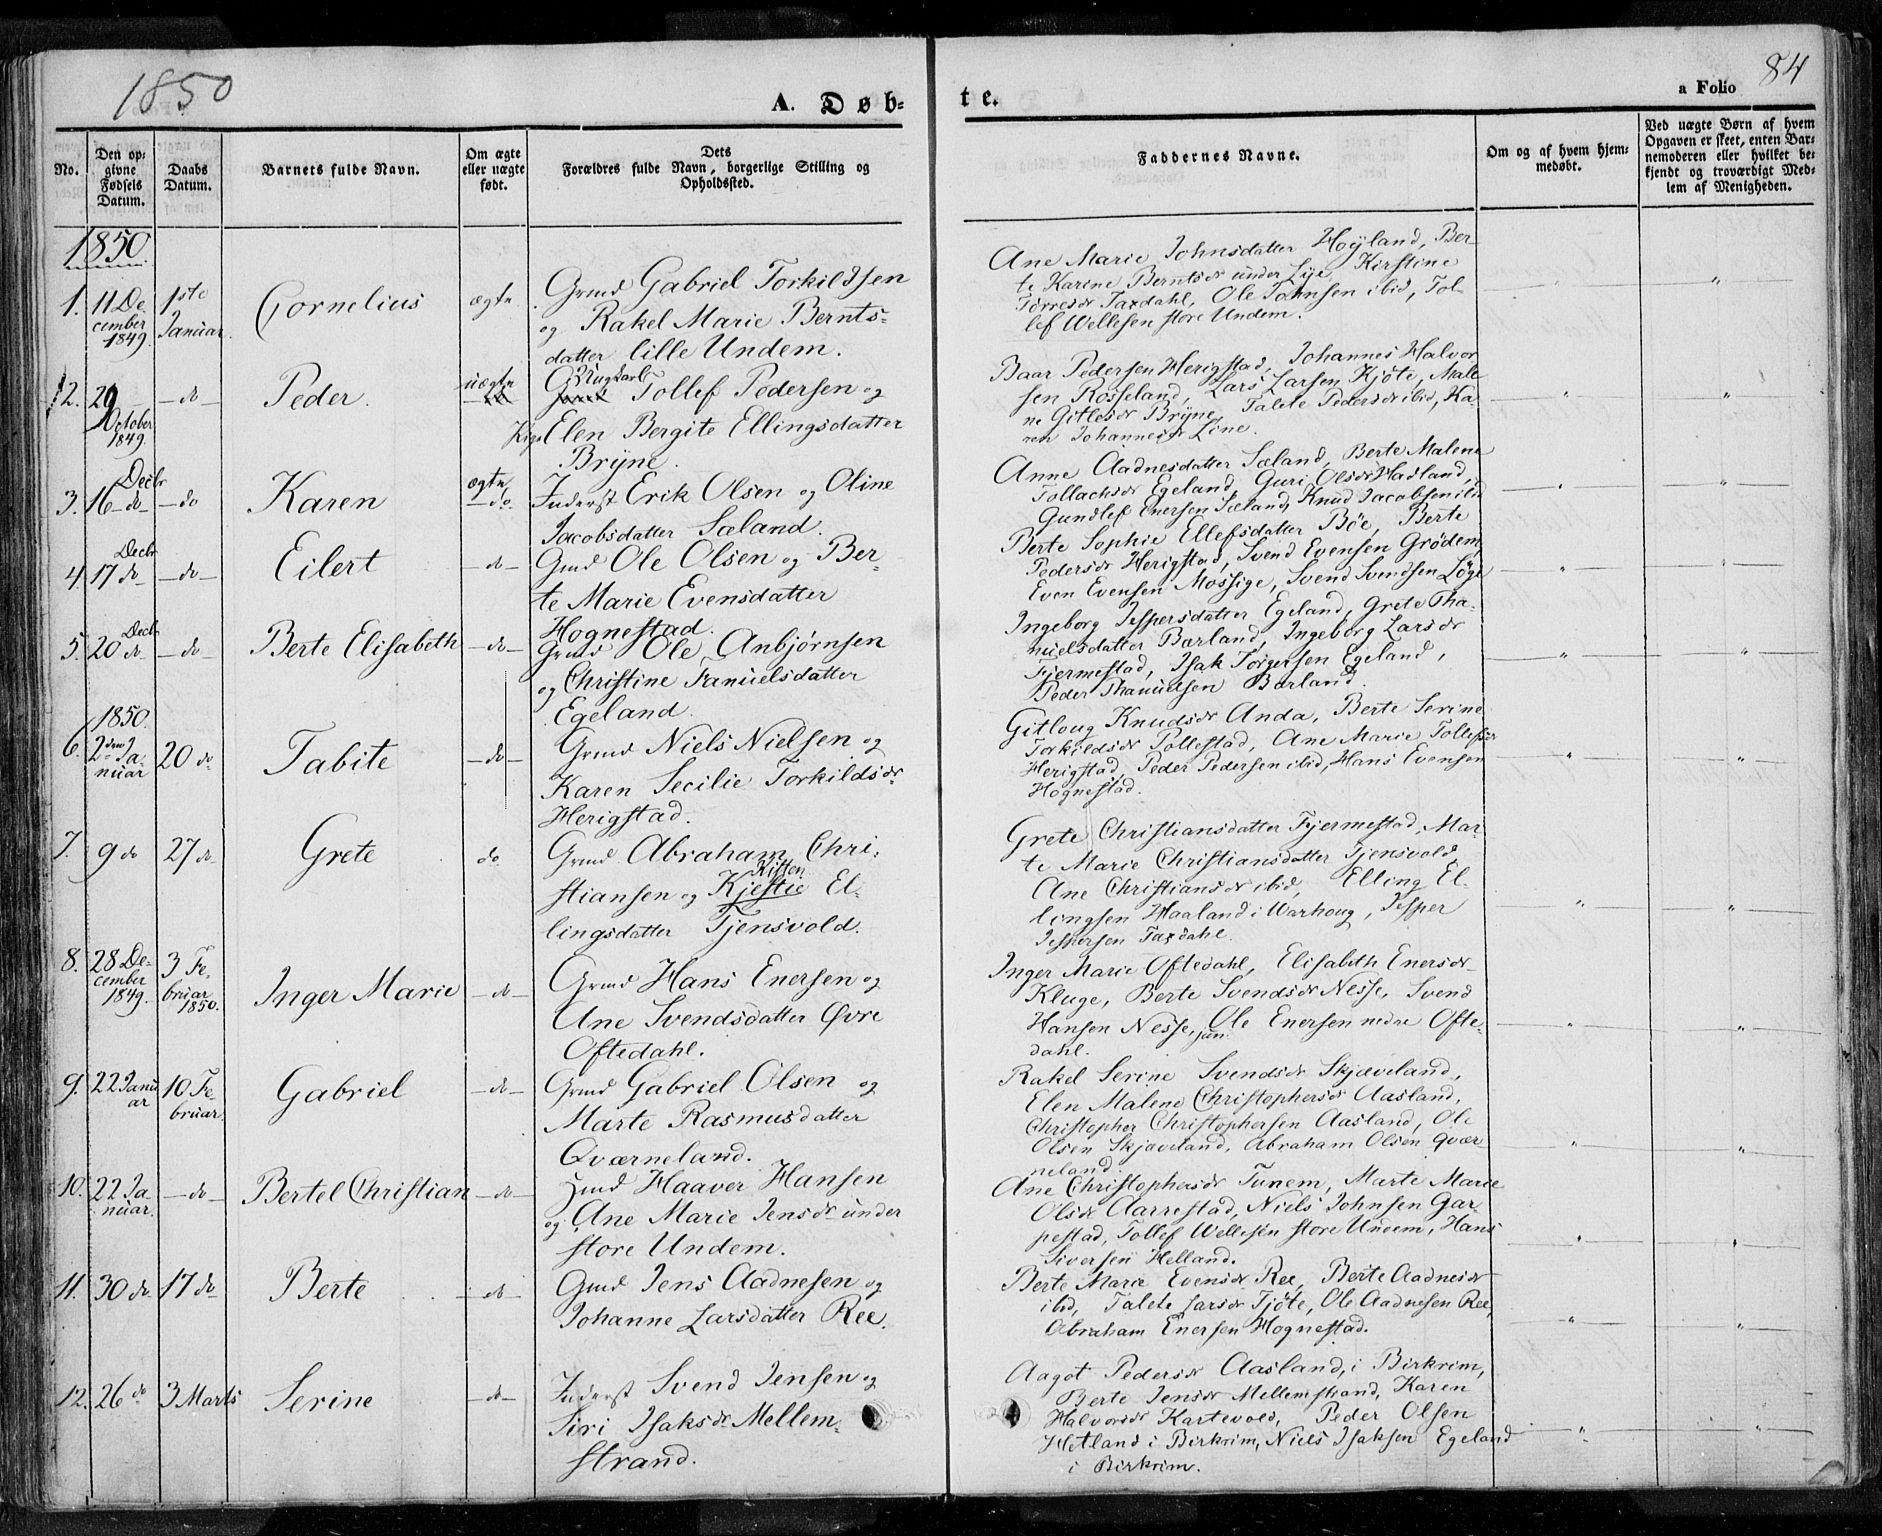 1850
A. Døb-
te.
a Folio 84
No.
Den op-
givne
Fødsels
Datum.
Daabs
Datum.
Barnets fulde Navn.
Om ægte
eller uægte
født.
Dets
Forældres fulde Navn, borgerlige Stilling og
Opholdssted.
Faddernes Navne.
Om og af hvem hjem-
medøbt.
Ved uægte Børn af hvem
Opgaven er skeet, enten Bar-
nemoderen eller hvilket be-
kjendt og troværdigt Med-
lem af Menigheden.
1850
1. 11 De-
cember
1849.
1ste
Januar.
Cornelius
ægte
Grmd Gabriel Torkildsen
og Rakel Marie Bernts-
datter lille Undem.
Ane Marie Johnsdatter Høyland, Ber-
te Karine Berntsdr under Lye, Kirstine
Torresdr Taxdahl, Ole Johnsen ibid, Tol-
lef Wellesen store Undem.
2. 29
October
1849.
do
Peder.
uægte
Ungkarl
Tollef Pedersen og
Pige Elen Bergite Ellingsdatter
Bryne.
Baar Pedersen Herigstad, Johannes Halvor
sen Rosseland, Lars Larsen Kjøte, Male
ne Gitlesdr Bryne, Talete Pedersdr ibid, Ka-
ren Johannesdr Line.
3. 16 Decbr
do
do
Karen
ægte
do
Inderst Erik Olsen og Oline
Jacobsdatter Sæland.
Anne Aadnesdatter Sæland, Berte Malene
Tollachsdr Egeland, Guri Olsdr Hadland,
Gundlef Enersen Sæland, Knud Jacobsen ibid
4. 17 Decbr
do
do
Eilert
do
Gmd Ole Olsen og Ber-
te Marie Evensdatter
Hognestad.
Berte Sophie Ellefsdatter Bøe, Berte
Pedersdr Herigstad, Svend Evensen Grødem,
Even Evensen Mossige, Svend Svendsen Løge
5. 20 Decbr
do
do
Berte Elisabeth
do
Grmd Ole Anbjørnsen
og Christine Famuelsdatter
Egeland.
Ingeborg Jespersdatter Egeland, Grete Tha-
nuelsdatter Barland, Ingeborg Larsdr
Fjermestad, Isak Torgersen Egeland,
Peder Thanuelsen Barland.
1850.
6. 2den Ja-
nuar
20 do
Tabite
do
Grmd Niels Nielsen og
Karen Secilie Torkildsdr
Herigstad.
Gitloug Knudsdr Anda, Berte Serine
Torkildsdr Pollestad, Ane Marie Tollefsdr
Herigstad, Peder Pedersen ibid, Hans Evensen
Hognestad.
7. 9 do
27 do
Grete
do
Grmd Abraham Chri-
Kisten
stiansen og Kjestie El-
lingsdatter Tjensvold.
Grete Christiansdatter Fjermestad, Mar-
te Marie Christiansdatter Tjensvold,
Ane Christiansdr ibid, Elling El-
lingsen Haaland i Warhoug, Jesper
Jespersen Taxdahl.
8. 28 De-
cember
1849.
3 Fe-
bruar
1850.
Inger Marie
do
Grmd Hans Enersen og
Ane Svendsdatter Øvre
Oftedahl.
Inger Marie Oftedahl, Elisabeth Enersdr
Kluge, Berte Svendsdr Nesse, Svend
Hansen Nesse, Ole Enersen nedre Ofte-
jun
dahl.
9. 22 Janu
ar
10 Fe-
bruar.
Gabriel
do
Grmd Gabriel Olsen og
Marte Rasmusdatter
Qværneland.
Rakel Serine Svendsdr Skjæveland,
Elen Malene Christophersdr Aasland,
Christopher Christophersen Aasland, Ole
Olsen Skjæveland, Abraham Olsen Qvær
neland.
10. 22 Ja
nuar.
do
Bertel Christian
do
Haaver Hansen
og Ane Marie Jensdr under
store Undem.
Ane Christophersdr Tunem, Marte Marie
Olsdr Aarrestad, Niels Johnsen Gar-
pestad, Tollef Wellesen store Undem, Hans
Siversen Helland.
11. 30 do
17 do
Berte
do
Gmd Jens Aadnesen og
Johanne Larsdatter Ree.
Berte Marie Evensdr Ree, Berte Aadnesdr
ibid, Talete Larsdr Tjøte, Ole Aadnesen Ree,
Abraham Enersen Hognestad.
12. 26 do
3 Marts
Serine
do
Inderst Svend Jensen og
Siri Isaksdr Mellem-
strand.
Aagot Pedersdr Aasland, i Birkrim,
Berte Jensdr Mellemstrand, Karen
Halvorsdr Kartevold, Peder Olsen
Hetland i Birkrim, Niels Isaksen Egeland
i Birkrim.